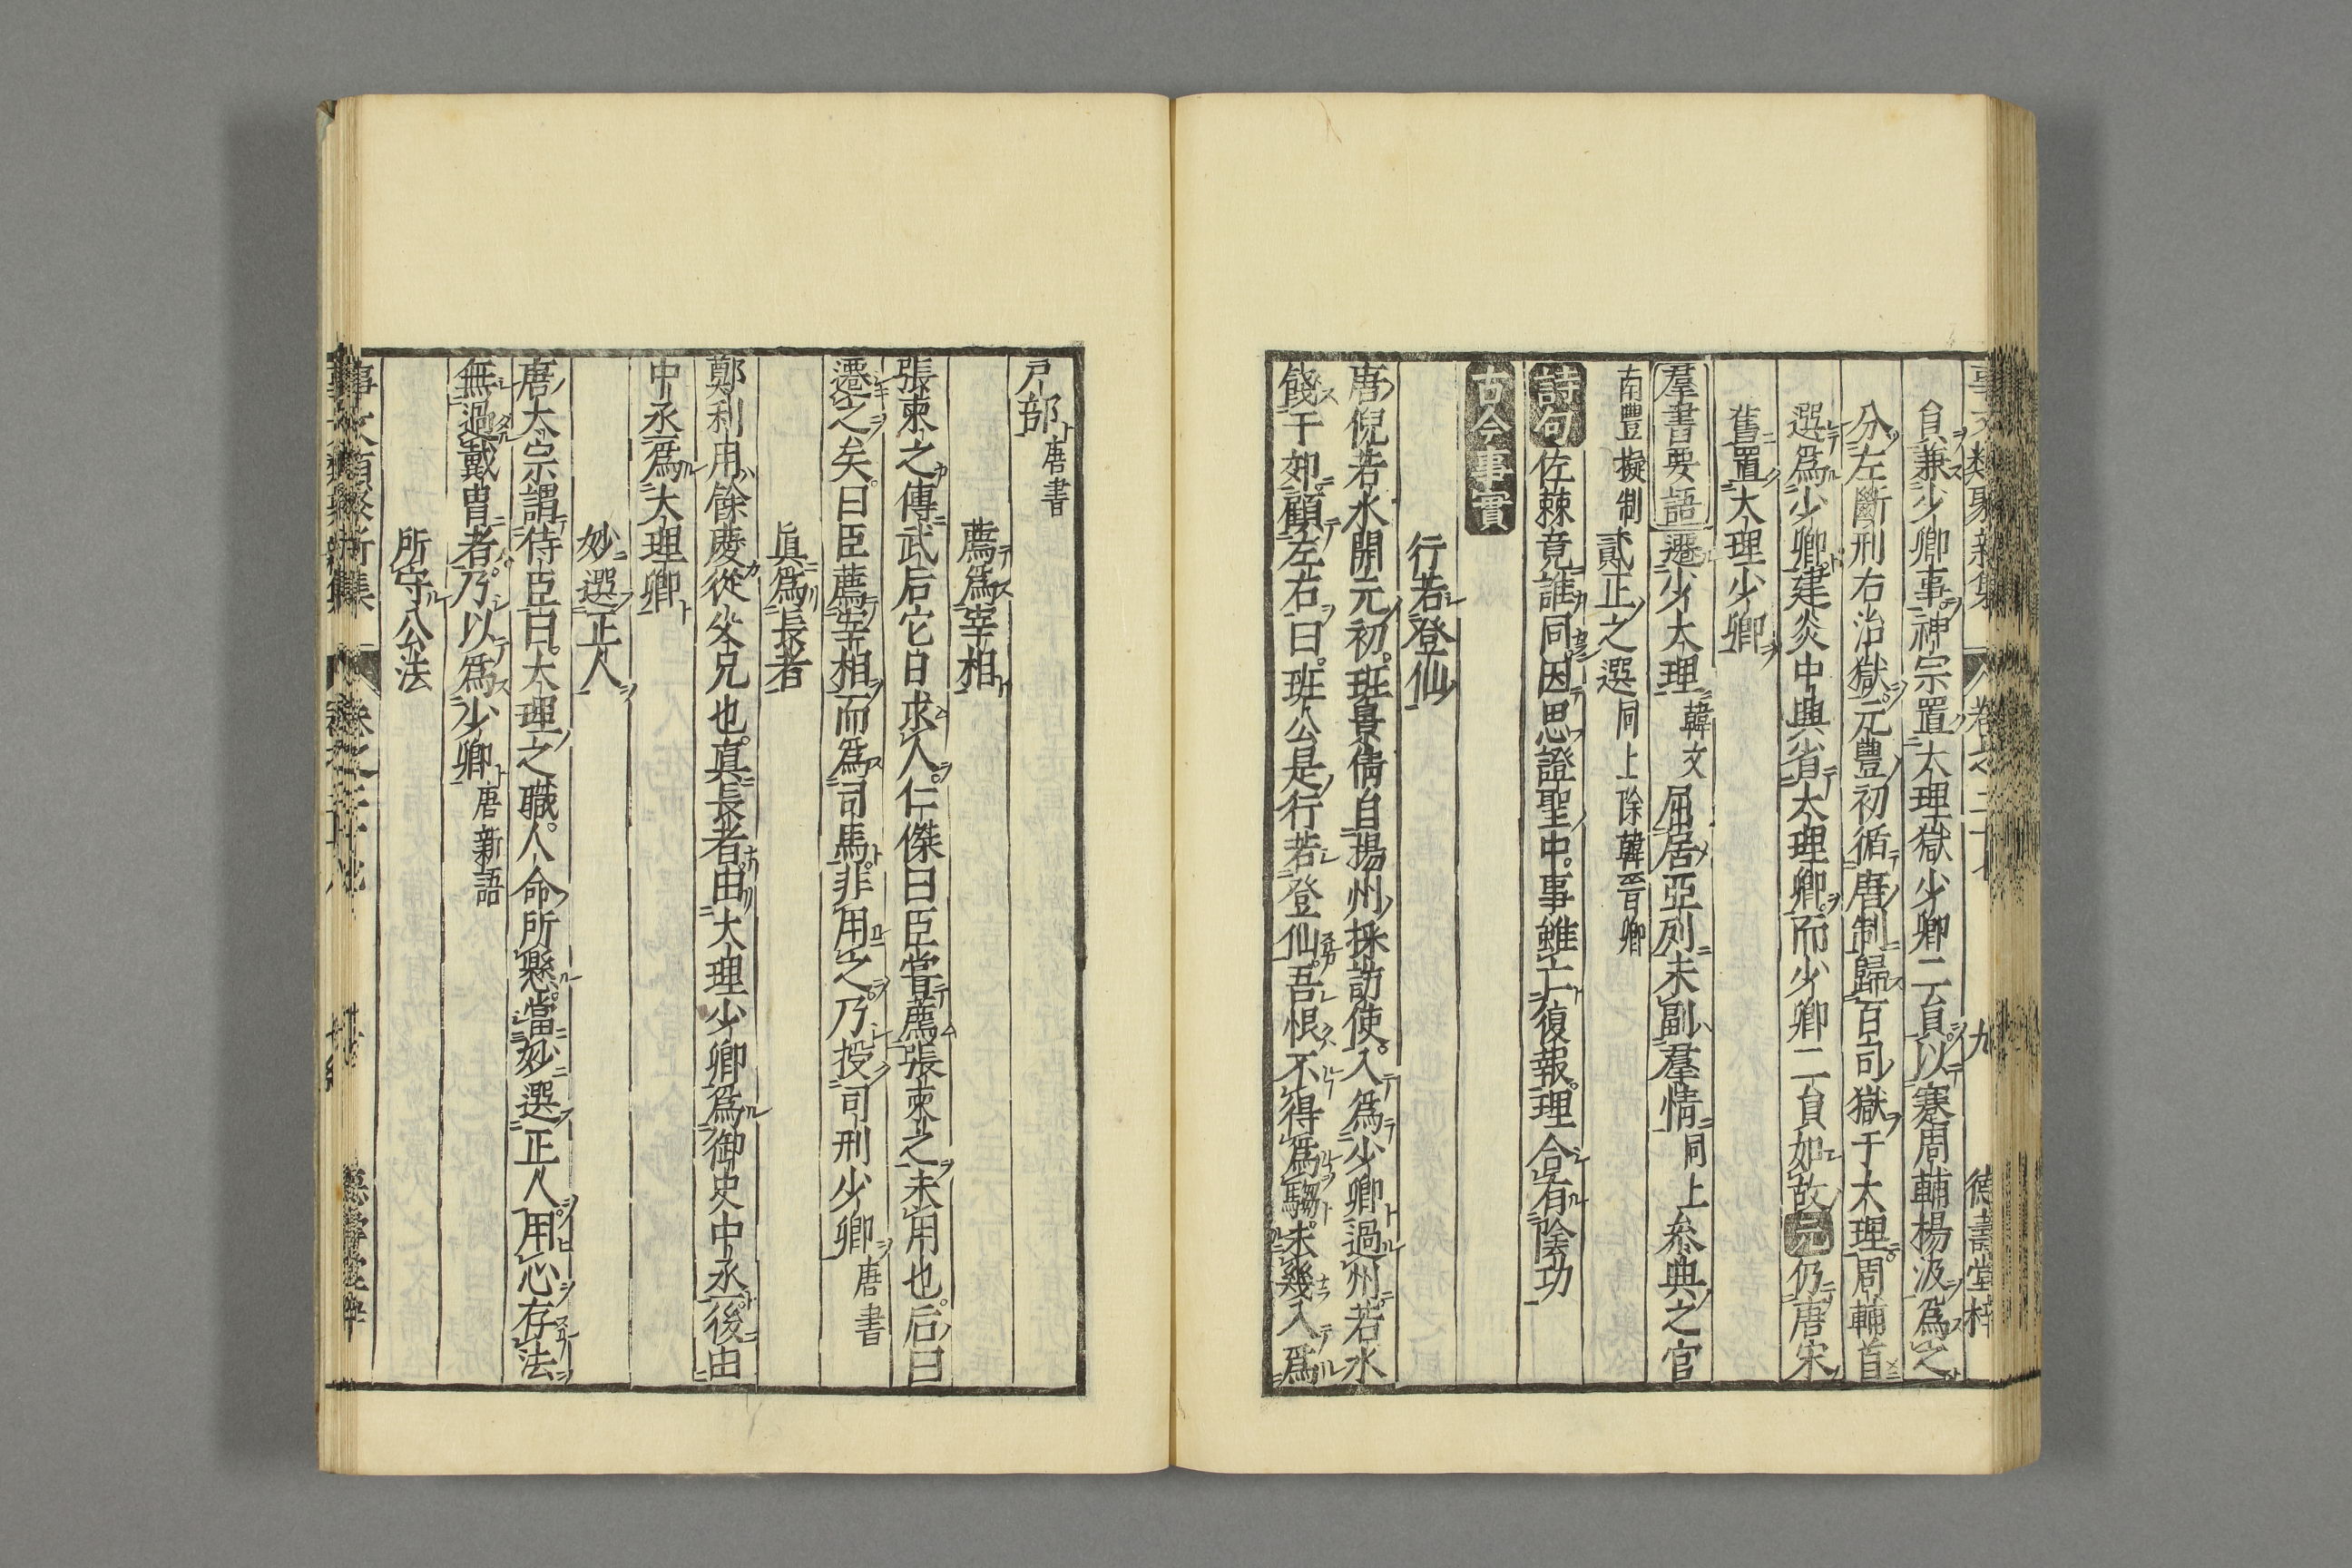 事文類聚新集 卷之二十七 九 德壽堂梓
負兼少卿事神宗置大理獄少卿二員以蹇周輔楊汲爲之
分左斷刑右治獄元豐初循唐制歸百司獄于大理周輔首
選爲少卿建炎中興省大理卿而少卿二員如故元仍唐宋
舊置大理少卿
羣書要語遷少大理韓文屈居亞列未副羣情同上叅典之官
南豐擬制貳正之選同上除韓晉卿
詩句佐棘竟誰同因思證聖中事雖亡復報理合有陰功
古今事實
行若登仙
唐倪若水開元初班景倩自揚州採訪使入爲少卿過州若水
餞于郊顧左右曰班公是行若登仙吾恨不得爲騶未幾入爲
戸部唐書
薦爲宰相
張柬之傳武后它日求人仁傑曰臣當薦張柬之未用也后曰
遷之矣曰臣薦宰相而爲司馬非用之乃授司刑少卿唐書
眞爲長者
鄭利用餘慶從父兄也真長者由大理少卿爲御史中丞後由
中丞爲大理卿
妙選正人
唐太宗謂侍臣曰大理之職人命所懸當妙選正人用心存法
無過戴胄者乃以爲少卿唐新語
所守公法
事文類聚新集 卷之二十七